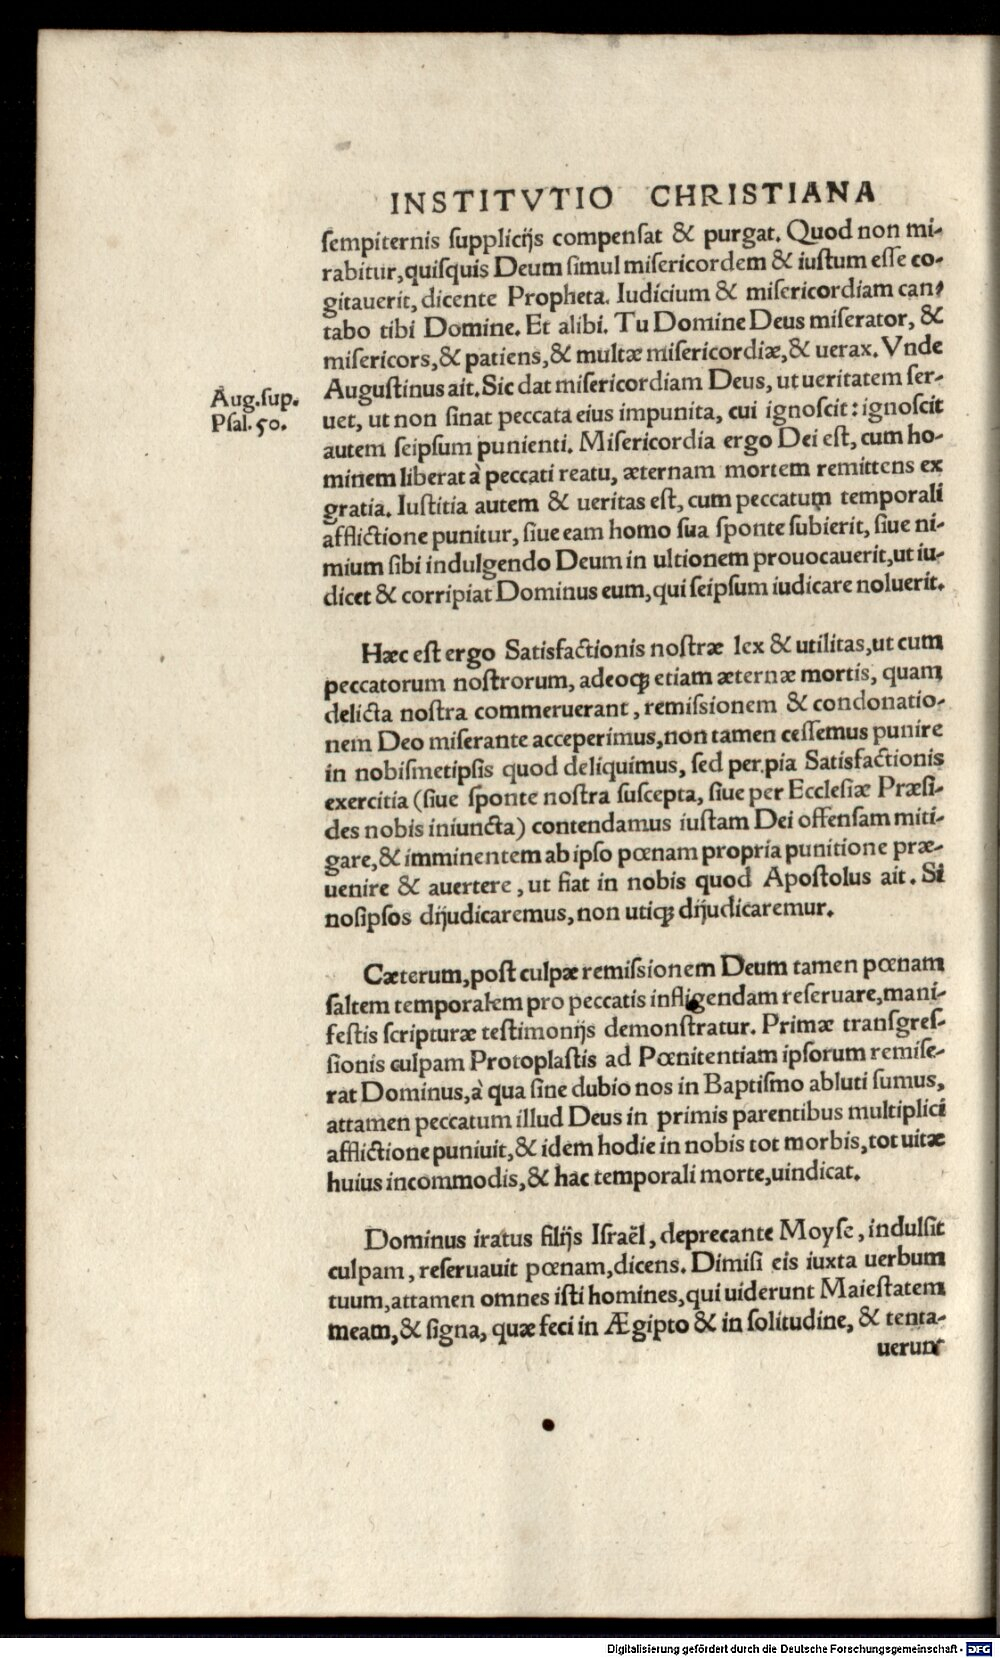 INSTITVTIO CHRISTIANA
sempiternis supplicijs compensat & purgat. Quod non mi-
rabitur, quisquis Deum simul misericordem & iustum esse co-
gitauerit, dicente Propheta. Iudicium & misericordiam can-
tabo tibi Domine. Et alibi. Tu Domine Deus miserator, &
misericors, & patiens, & multæ misericordiæ, & uerax. Vnde
Aug. sup.
Psal. 50.
Augustinus ait. Sic dat misericordiam Deus, ut ueritatem ser-
uet, ut non sinat peccata eius impunita, cui ignoscit: ignoscit
autem seipsum punienti. Misericordia ergo Dei est, cum ho-
minem liberat à peccati reatu, æternam mortem remittens ex
gratia. Iustitia autem & ueritas est, cum peccatum temporali
afflictione punitur, siue eam homo sua sponte subierit, siue ni-
mium sibi indulgendo Deum in ultionem prouocauerit, ut iu-
dicet & corripiat Dominus eum, qui seipsum iudicare noluerit.
Hæc est ergo Satisfactionis nostræ lex & utilitas, ut cum
peccatorum nostrorum, adeoq; etiam æternæ mortis, quam
delicta nostra commeruerant, remissionem & condonatio-
nem Deo miserante acceperimus, non tamen cessemus punire
in nobismetipsis quod deliquimus, sed per pia Satisfactionis
exercitia (siue sponte nostra suscepta, siue per Ecclesiæ Præsi-
des nobis iniuncta) contendamus iustam Dei offensam miti-
gare, & imminentem ab ipso pœnam propria punitione præ-
uenire & auertere, ut fiat in nobis quod Apostolus ait. Si
nosipsos dijudicaremus, non utiq; dijudicaremur.
Cæterum, post culpæ remissionem Deum tamen pœnam
saltem temporalem pro peccatis infligendam reseruare, mani-
festis scripturæ testimonijs demonstratur. Primæ transgres-
sionis culpam Protoplastis ad Pœnitentiam ipsorum remise-
rat Dominus, à qua sine dubio nos in Baptismo abluti sumus,
attamen peccatum illud Deus in primis parentibus multiplici
afflictione puniuit, & idem hodie in nobis tot morbis, tot uitæ
huius incommodis, & hac temporali morte, uindicat.
Dominus iratus filijs Israël, deprecante Moyse, indulsit
culpam, reseruauit pœnam, dicens. Dimisi eis iuxta uerbum
tuum, attamen omnes isti homines, qui uiderunt Maiestatem
meam, & signa, quæ feci in Ægipto & in solitudine, & tenta-
uerunt
Digitalisierung gefördert durch die Deutsche Forschungsgemeinschaft - DFG